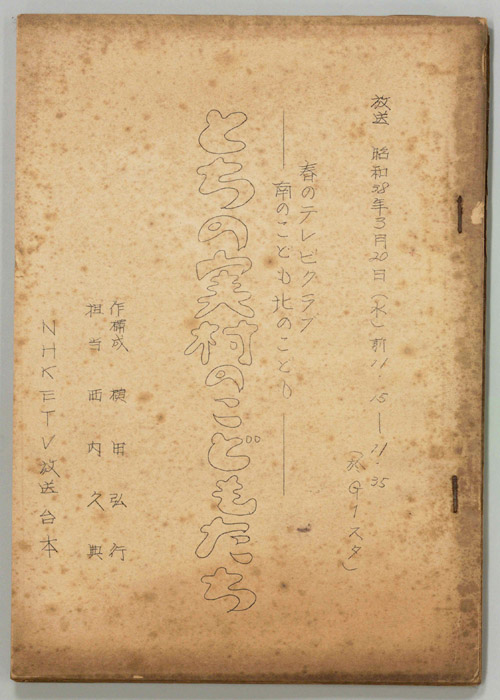 放送 昭和38年3月20日(水)前11.15―11.35
スタ)
春のテレビクラブ
――南のこども北のこども――
とちの実村のこどもたち
作構成 横田弘行
担当 西内久典
NHKETV放送台本